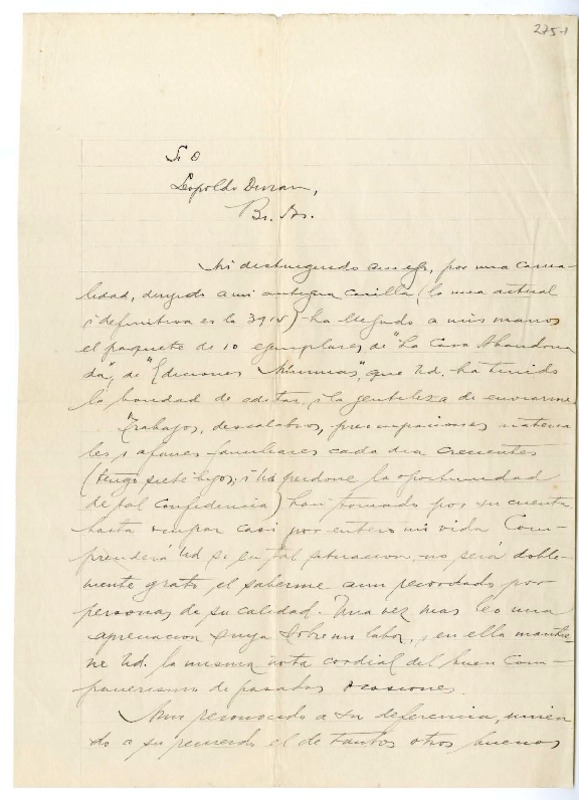 275-1
Sr D
Leopoldo Duran,
Bs. As.
Mi distinguido amigo, por una casua-
lidad, dirijido a mi antigua casilla (la mia actual
i definitiva es la 3915) ha llegado a mis manos
el paquete de 10 ejemplares de "La Casa Abandona
da", de "Ediciones Mínimas", que Ud. ha tenido
la bondad de editar, i la gentileza de enviarme
Trabajos, descalabros, preocupaciones materia
les i afanes familiares cada dia crecientes
(tengo siete hijos; i Ud perdone la oportunidad
de tal confidencia) han tomado por su cuenta
hasta ocupar casi por entero mi vida Com-
prenderá Ud si en tal situacion no será doble-
mente grato el saberme aun recordado por
personas de su calidad. Una vez mas leo una
apreciacion suya sobre mi labor, i en ella mantie-
ne Ud. la misma nota cordial del buen com-
pañerismo de pasadas ocasiones.
Mui reconocido a su deferencia, unien
do a su recuerdo el de tantos otros buenos